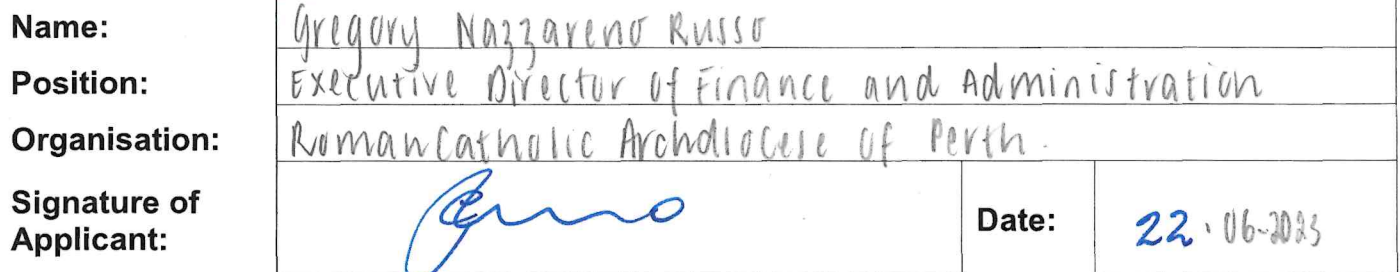 Name: Gregory Nazzareno Russo
Position: Executive Director of Finance and Administration
Organisation: Roman Catholic Archdiocese of Perth.
Signature of
Applicant:
Date: 22.06-2023